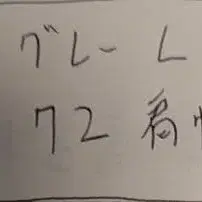 グレー L
72